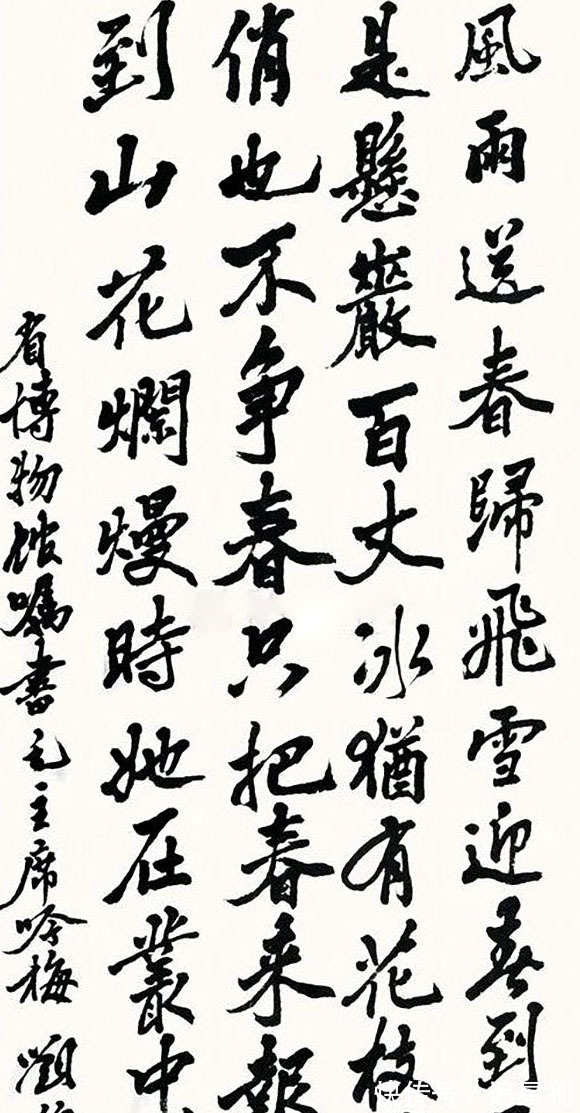 風雨送春歸飛雪迎春到
是懸巖百丈冰猶有花枝
俏也不争春只把春来報
到山花爛熳時她在叢中
省博物館嘱書毛主席咏梅 劉